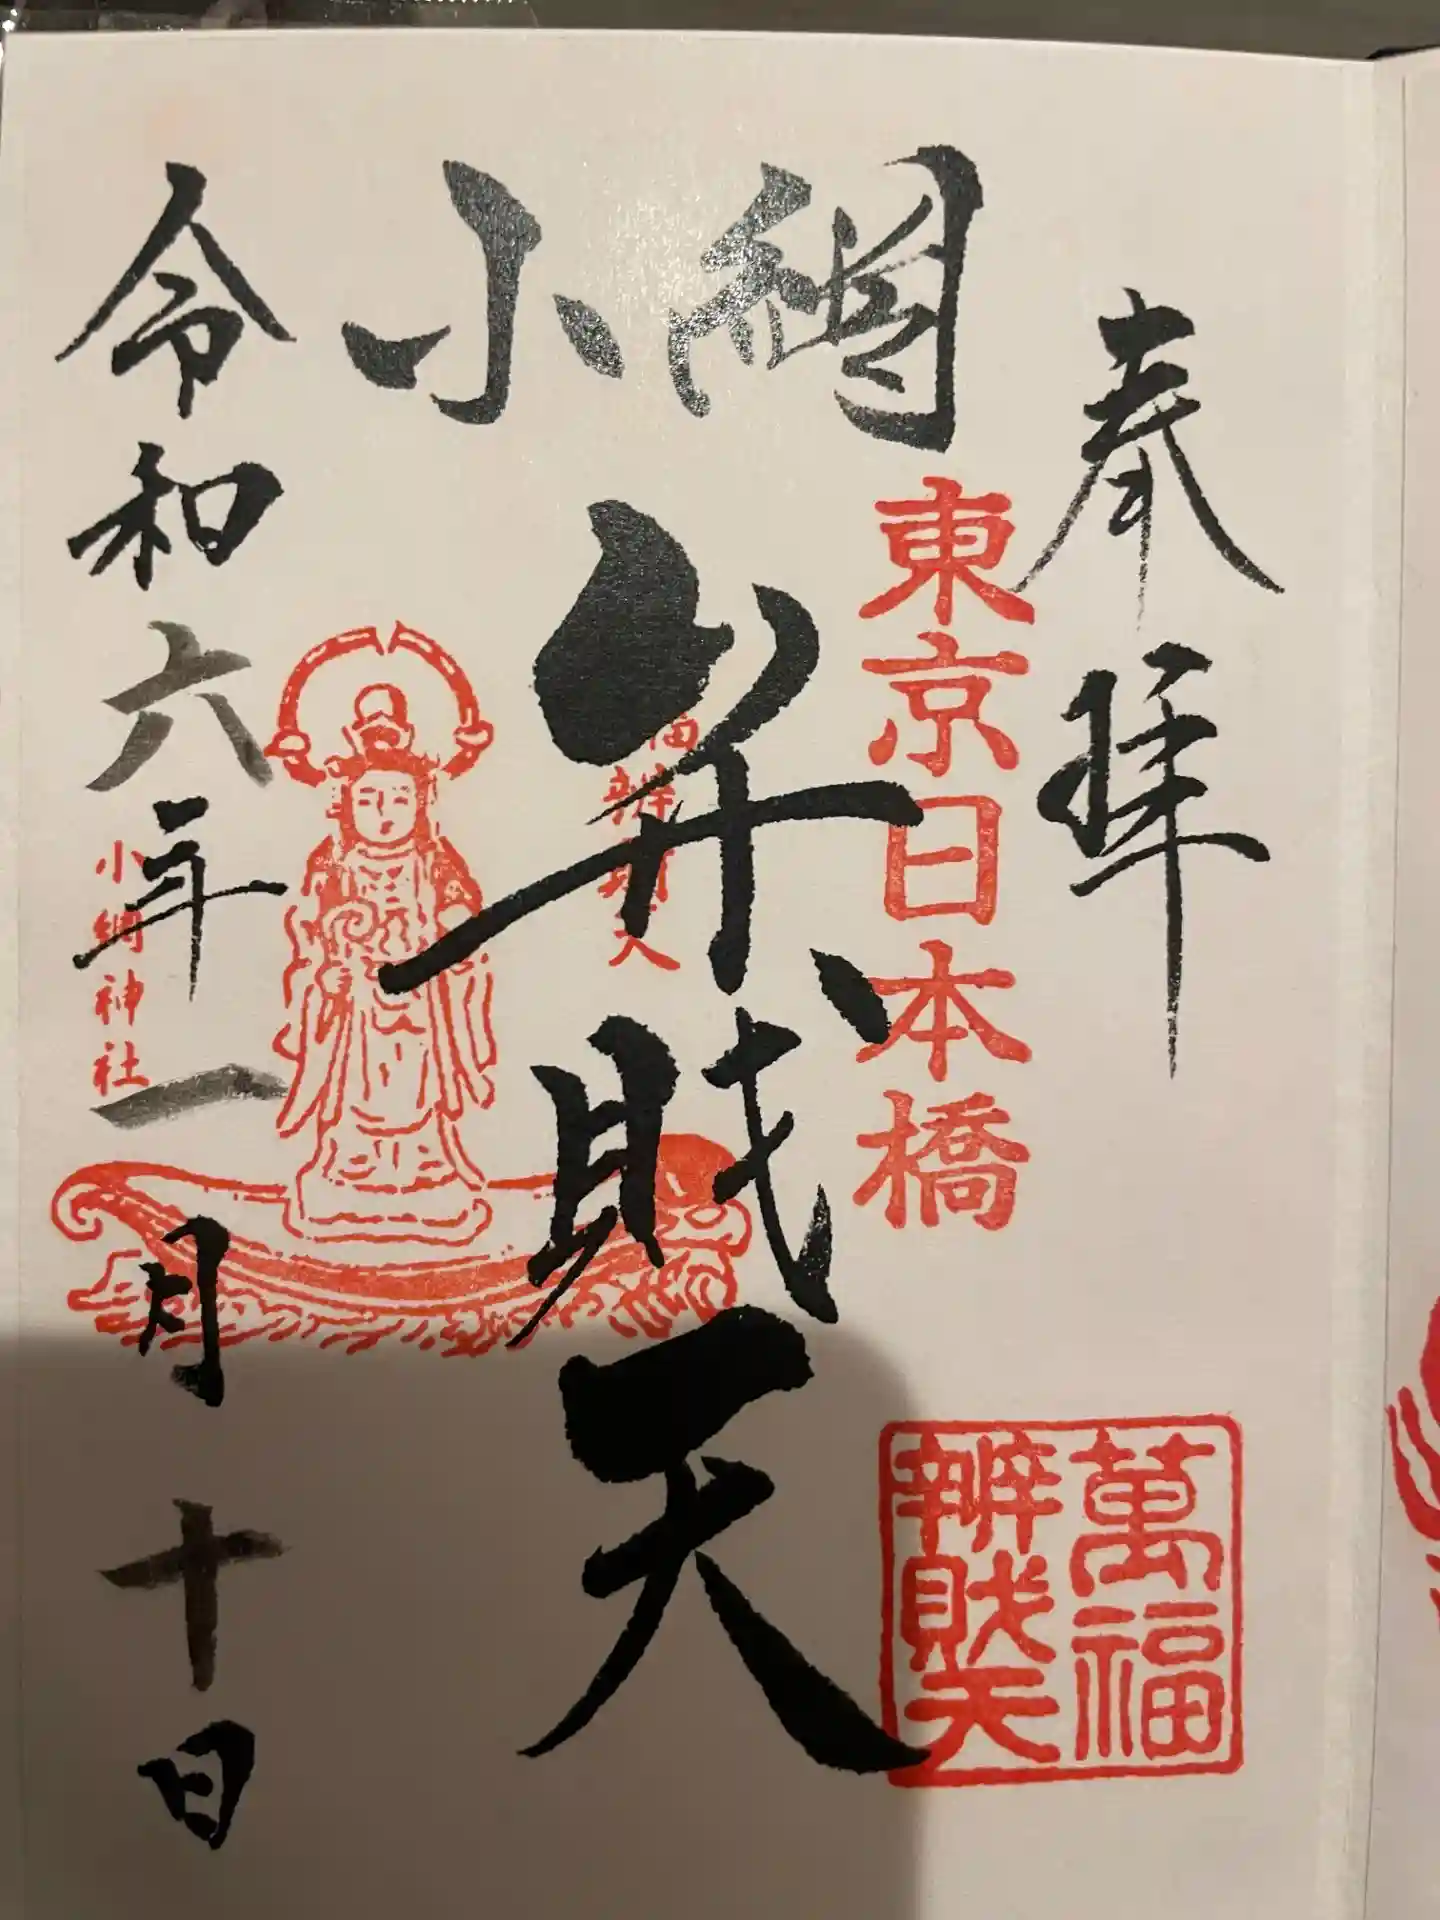 奉拝
東京日本橋
萬福
辨財天
小網
弁財天
福辨財天
小網神社
令和六年一月十日